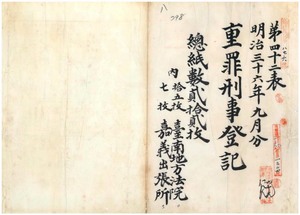 第四十二表
明治三十六年九月分
重罪刑事登記
總紙數貳拾貳枚
內 拾五枚 臺南地方法院
七枚 嘉義出張所